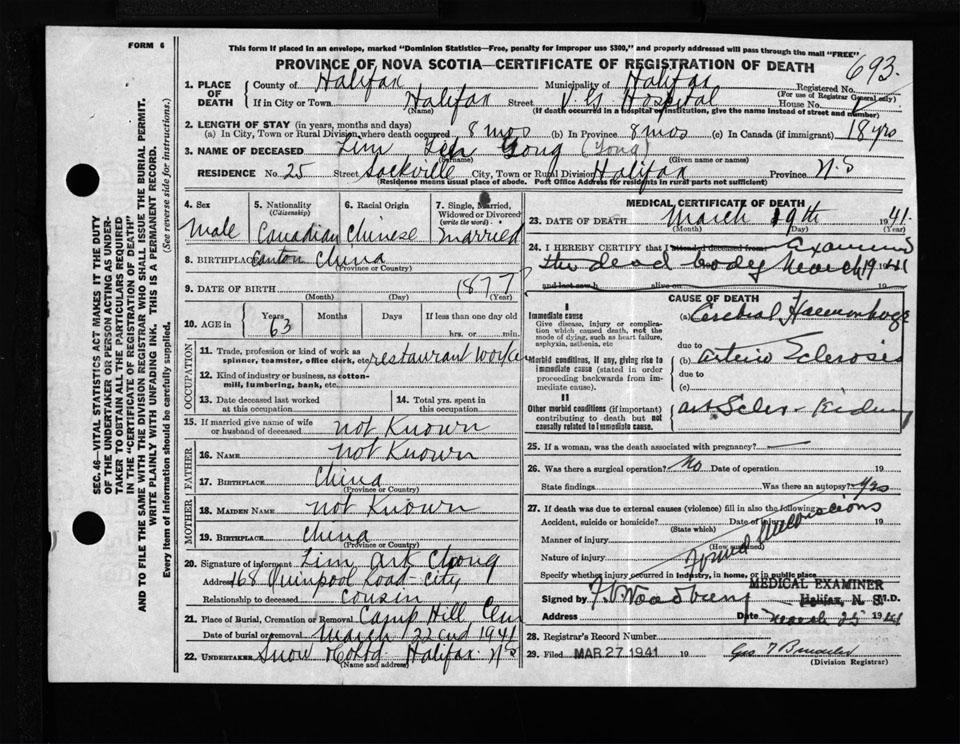 FORM 6
This form if placed in an envelope, marked "Dominion Statistics—Free, penalty for improper use $300," and properly addressed will pass through the mail "FREE"
PROVINCE OF NOVA SCOTIA—CERTIFICATE OF REGISTRATION OF DEATH 693.
1. PLACE OF DEATH County of Halifax Municipality of Halifax Registered No.
(For use of Registrar General only)
If in City or Town Halifax Street V.G Hospital House No.
(If death occurred in a hospital or institution, give the name instead of street and number)
2. LENGTH OF STAY (in years, months and days)
(a) In City, Town or Rural Division where death occurred 8 mos (b) In Province 8 mos (c) In Canada (if immigrant) 18 yrs
3. NAME OF DECEASED Lim Gong (Yong)
(Surname) (Given name or names)
RESIDENCE No. 25 Street Sackville City, Town or Rural Division Halifax Province N.S
(Residence means usual place of abode. Post Office Address for residents in rural parts not sufficient)
SEC. 46—VITAL STATISTICS ACT MAKES IT THE DUTY
OF THE UNDERTAKER OR PERSON ACTING AS UNDER-
TAKER TO OBTAIN ALL THE PARTICULARS REQUIRED
IN THE "CERTIFICATE OF REGISTRATION OF DEATH"
AND TO FILE THE SAME WITH THE DIVISION REGISTRAR WHO SHALL ISSUE THE BURIAL PERMIT.
WRITE PLAINLY WITH UNFADING INK. THIS IS A PERMANENT RECORD.
Every item of Information should be carefully supplied. (See reverse side for instructions.)
4. Sex
Male
5. Nationality
(Citizenship)
Canadian
6. Racial Origin
Chinese
7. Single, Married,
Widowed or Divorced
(write the word)
Married
8. BIRTHPLACE Canton China
(Province or Country)
9. DATE OF BIRTH 1877?
(Month) (Day) (Year)
10. AGE in Years 63 Months Days If less than one day old
hrs. or min.
OCCUPATION
11. Trade, profession or kind of work as
spinner, teamster, office clerk, etc. restaurant worker
12. Kind of industry or business, as cotton-
mill, lumbering, bank, etc.
13. Date deceased last worked
at this occupation
14. Total yrs. spent in
this occupation
15. If married give name of wife
or husband of deceased not Known
FATHER
16. NAME not Known
17. BIRTHPLACE China
(Province or Country)
MOTHER
18. MAIDEN NAME not Known
19. BIRTHPLACE China
(Province or Country)
20. Signature of informant Lim Ark Chong
Address 168 Quinpool Road—city
Relationship to deceased cousin
21. Place of Burial, Cremation or Removal Camp Hill Cem
Date of burial or removal March 22nd 1941
22. UNDERTAKER Snow Halifax N S
(Name and address)
MEDICAL CERTIFICATE OF DEATH
23. DATE OF DEATH March 19th 1941.
(Month) (Day) (Year)
24. I HEREBY CERTIFY that I attended deceased from Examined
the dead body March 19 1941
and last saw h alive on
CAUSE OF DEATH
I
Immediate cause
Give disease, injury or complica-
tion which caused death, not the
mode of dying, such as heart failure,
asphyxia, asthenia, etc
(a) Cerebral Haemorrhage
due to
Morbid conditions, if any, giving rise to
immediate cause (stated in order
proceeding backwards from im-
mediate cause).
(b) arterio Sclerosis
due to
(c)
II
Other morbid conditions (if important)
contributing to death but not
causally related to immediate cause.
art Scler - Kidney
25. If a woman, was the death associated with pregnancy?
26. Was there a surgical operation? No Date of operation 19
State findings Was there an autopsy? yes
27. If death was due to external causes (violence) fill in also the following
Accident, suicide or homicide? Date of injury 19
(State which)
Manner of injury
(How sustained)
Nature of injury
Found unconscious
Specify whether injury occurred in industry, in home, or in public place
MEDICAL EXAMINER
Halifax, N. S.
Signed by M.D.
Address Date March 25 1941
28. Registrar's Record Number
29. Filed MAR 27 1941 19
(Division Registrar)